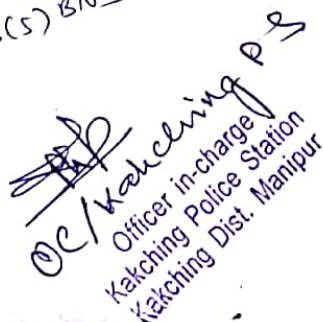 (5) BN
OC/Kakching PS
Officer in-charge
Kakching Police Station
Kakching Dist. Manipur